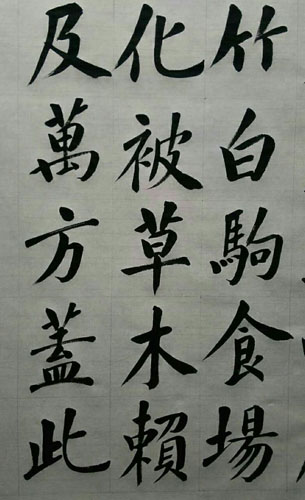 竹白駒食場
化被草木賴
及萬方蓋此